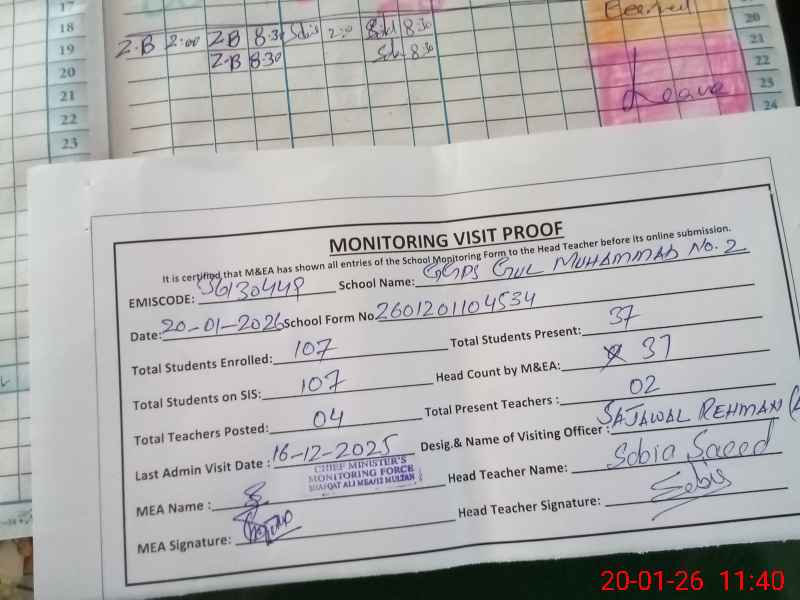 17
18
19
20
21
22
23
Z.B 2:00 Z.B 8:30 2:00 8:30
Z.B 8:30 8:30
20
21
22
23
24
Leave
MONITORING VISIT PROOF
It is certified that M&EA has shown all entries of the School Monitoring Form to the Head Teacher before its online submission.
EMISCODE: 36130449 School Name: GGPS GUL MUHAMMAD NO. 2
Date: 20-01-2026 School Form No 2601201104534
Total Students Enrolled: 107 Total Students Present: 37
Total Students on SIS: 107 Head Count by M&EA: 37
Total Teachers Posted: 04 Total Present Teachers : 02
Last Admin Visit Date : 16-12-2025 Desig.& Name of Visiting Officer : SAJAWAL REHMAN (A
CHIEF MINISTER'S
MONITORING FORCE
SHAFQAT ALI MEA/12 MULTAN
MEA Name : Head Teacher Name: Sobia Saeed
MEA Signature: Head Teacher Signature: Sobia
20-01-26 11:40